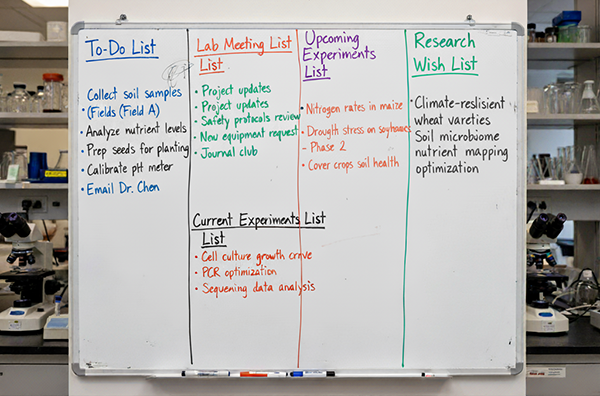 To-Do List
Collect soil samples
• (Fields (Field A)
• Analyze nutrient levels
• Prep seeds for planting
• Calibrate pH meter
• Email Dr. Chen
Lab Meeting List
List
• Project updates
• Project updates
• Safety protocols review
• New equipment request
• Journal club
Upcoming
Experiments
List
• Nitrogen rates in maize
• Drougth stress on
- Phase 2
• Cover crops soil health
Research
Wish List
• Climate-reslisient
wheat vareties
Soil microbiome
nutrient mapping
optimization
Current Experiments List
List
• Cell culture growth crrve
• PCR optimization
• Sequening data analysis